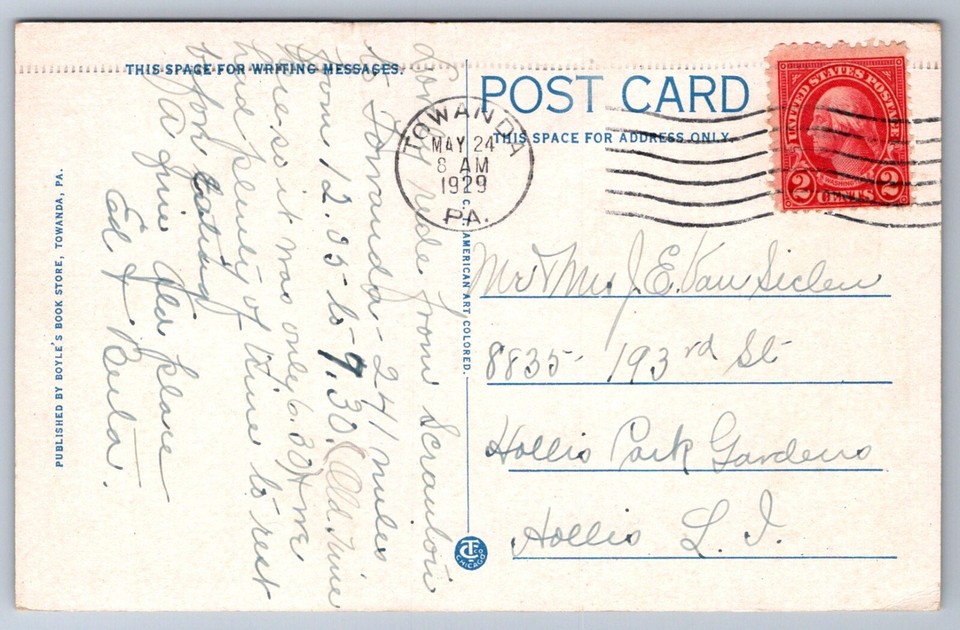 THIS SPACE FOR WRITING MESSAGES.
POST CARD
THIS SPACE FOR ADDRESS ONLY.
UNITED STATES POSTAGE
WASHINGTON
2 CENTS 2
TOWANDA
MAY 24
8 AM
1929
PA.
Mr & Mrs J. E. Van Siclen
8835- 193rd St
Hollis Park Gardens
Hollis L. I.
ride from Scranton
to Towanda - 241 miles
from 12.35 to 7.30. (Old time
here so it was only 6.30) + we
had plenty of time to rest
before eating
A fine place
Ed + Beula.
C. T. AMERICAN ART COLORED.
PUBLISHED BY BOYLE'S BOOK STORE, TOWANDA, PA.
CT CO
CHICAGO